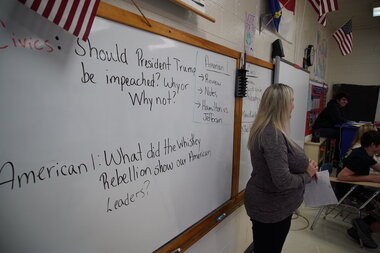 Civics:
Should President Trump
be impeached? Why or
Why not?
American
→ Review
→ Notes
→ Hamilton vs
Jefferson
American 1: What did the Whiskey
Rebellion show our American
Leaders?